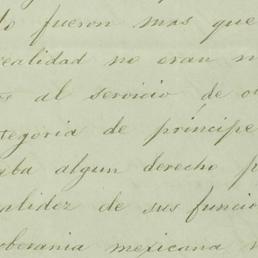 lo fueron mas que
realidad no eran m
al servicio de o
tegoria de principe
aba algun derecho p
alidez de sus funcio
oberania mexicana